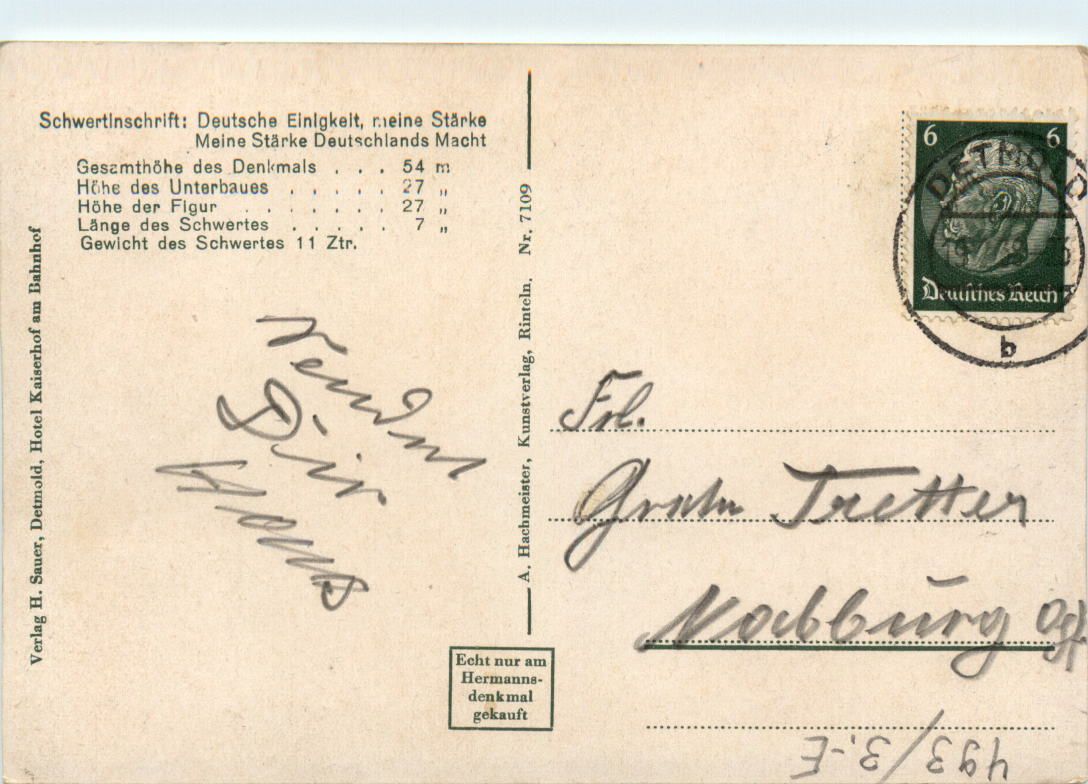 Schwertinschrift: Deutsche Einigkeit, meine Stärke
Meine Stärke Deutschlands Macht
Gesamthöhe des Denkmals . . . 54 m
Höhe des Unterbaues . . . . . 27 „
Höhe der Figur . . . . . . . 27 „
Länge des Schwertes . . . . . 7 „
Gewicht des Schwertes 11 Ztr.
Verlag H. Sauer, Detmold, Hotel Kaiserhof am Bahnhof
A. Hachmeister, Kunstverlag, Rinteln. Nr. 7109
Dir
Echt nur am
Hermanns-
denkmal
gekauft
6 6
Deutsches Reich
DETMOLD
b
Frl.
Tretter
Nabburg Opf
493/3.-E